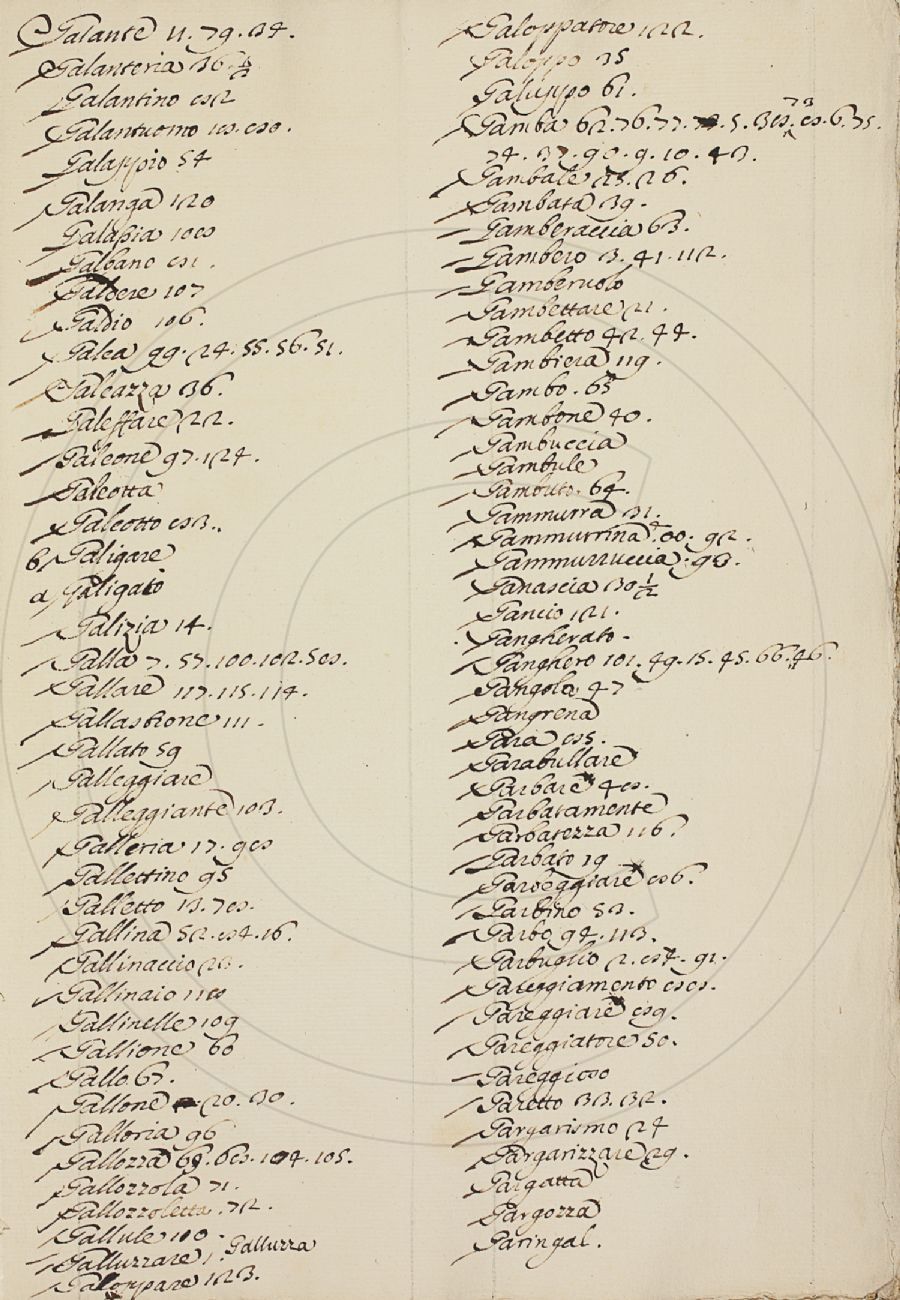 Galante 11. 79. 34.
Galanteria 36. ½
Galantino 82
Galantuomo 18. 80.
Galappio 54
Galanga 120
Galassia 108
Galbano 81.
Galdere 107
Galdio 106.
Galea 99. 24. 55. 56. 51.
Galeazza 36.
Galeffare 22.
Galeone 97. 124.
Galeotta
Galeotto 83.
b Galigare
a Galigaio
Galizia 14.
Galla 7. 57. 100. 102. 58.
Gallare 117. 115. 114.
Gallastione 111.
Gallato 59
Galleggiare
Galleggiante 103.
Galleria 17. 98
Gallettino 95
Galletto 13. 78.
Gallina 52. 84. 16.
Gallinaccio 23.
Gallinaio 118
Gallinelle 109
Gallione 60
Gallo. 67.
Gallone 20. 30.
Galloria 96
Gallozza 69. 68. 104. 105.
Gallozzola 71.
Gallozzoletta. 72.
Gallule 110.
Galluzzare 1. Galluzza
Galoppare 123.
Galoppatore 122.
Galoppo 35
Galuppo 61.
Gamba 62. 76. 77. 5. 38. 73. 8. 6. 75.
74. 37. 90. 9. 10. 43.
Gambale 25. 26.
Gambata 39.
Gamberaccia 63.
Gambero 3. 41. 112.
Gamberuolo
Gambettare 21.
Gambetto 42. 44.
Gambiera 119.
Gambo. 65
Gambone 40.
Gambuccia
Gambule
Gambuto. 64.
Gammurra 31.
Gammurrina. 80. 92.
Gammurruccia. 93.
Ganascia 30 ½
Gancio 121.
Gangherato.
Ganghero 101. 49. 15. 45. 66. 46.
Gangola 47
Gangrena
Gara 85.
Garabullare
Garbare 48.
Garbatamente
Garbatezza 116.
Garbato 19
Garbeggiare 86.
Garbino 53.
Garbo 94. 113.
Garbuglio 2. 87. 91.
Gareggiamento 88.
Gareggiare 89.
Gareggiatore 50.
Gareggioso
Garetto 33. 32.
Gargarismo 24
Gargarizzare 29.
Gargatta
Gargozza
Garingal.